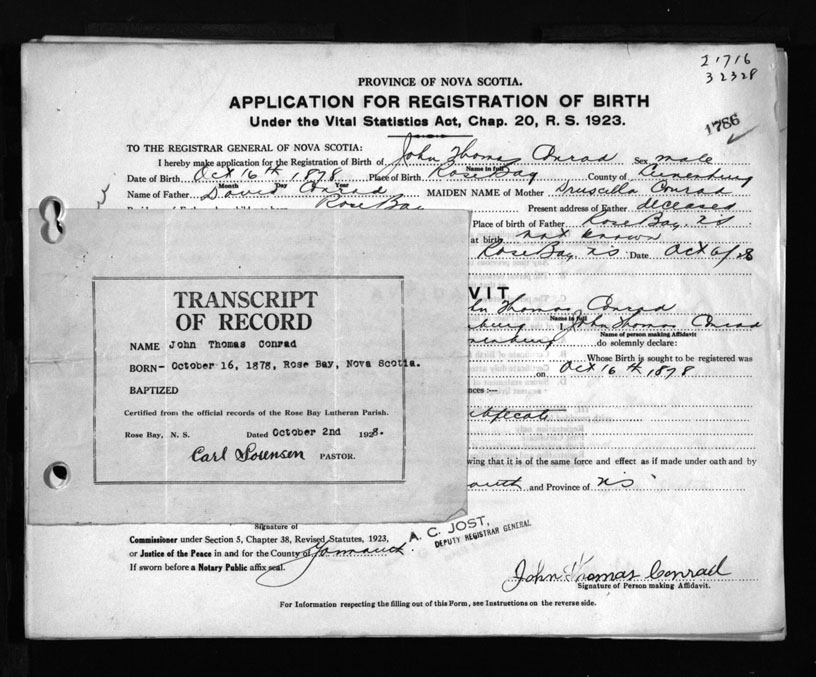 21716
32328
1786
PROVINCE OF NOVA SCOTIA.
APPLICATION FOR REGISTRATION OF BIRTH
Under the Vital Statistics Act, Chap. 20, R. S. 1923.
TO THE REGISTRAR GENERAL OF NOVA SCOTIA:
I hereby make application for the Registration of Birth of John Thomas Conrad Sex male
Name in full
Date of Birth Oct 16th 1878 Place of Birth Rose Bay County of Lunenburg
Month Day Year
Name of Father David Conrad MAIDEN NAME of Mother Druscilla Conrad
Rose Bay Present address of Father deceased
Place of birth of Father Rose Bay, NS
at birth not known
Rose Bay, NS Date Oct 6/28
VIT
John Thomas Conrad
Name in full
I, John Thomas Conrad
Name of person making Affidavit
do solemnly declare:
Whose Birth is sought to be registered was
on Oct 16th 1878
nces :—
wing that it is of the same force and effect as if made under oath and by
outh and Province of NS
TRANSCRIPT
OF RECORD
NAME John Thomas Conrad
BORN- October 16, 1878, Rose Bay, Nova Scotia.
BAPTIZED
Certified from the official records of the Rose Bay Lutheran Parish.
Rose Bay, N. S. Dated October 2nd 1928.
Carl Sorensen PASTOR.
Signature of
Commissioner under Section 5, Chapter 38, Revised Statutes, 1923,
or Justice of the Peace in and for the County of Yarmouth
If sworn before a Notary Public affix seal.
A. C. JOST,
DEPUTY REGISTRAR GENERAL
John Thomas Conrad
Signature of Person making Affidavit.
For Information respecting the filling out of this Form, see Instructions on the reverse side.